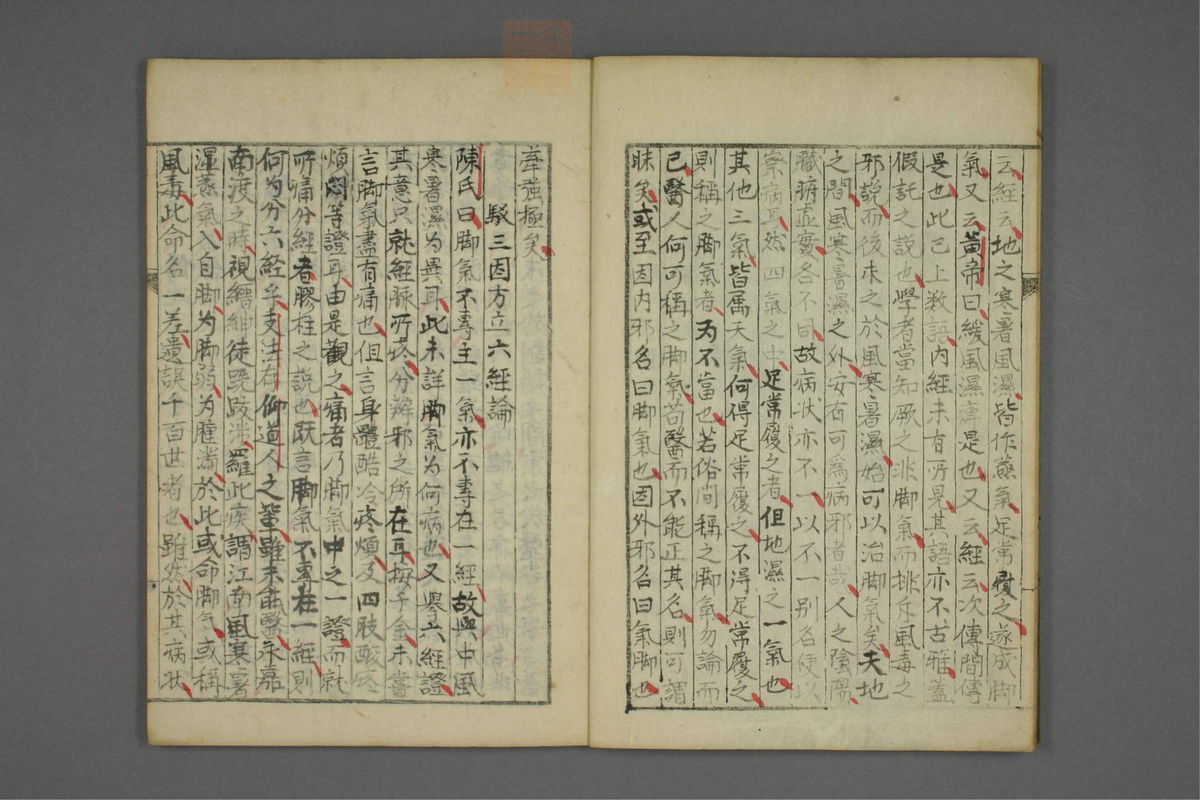 云經云地之寒暑風濕皆作蒸氣足常履之遂成脚
氣又云黃帝曰緩風濕痺是也又云經云次傳階傳
是也此已上敎語内經未有所見其語亦不古雅蓋
假託之說也學者當知厥之非脚氣而排斥風毒之
邪說而後求之於風寒暑濕始可以治脚氣矣夫地
之間風寒暑濕之外安有可為病邪者哉人之陰陽
臟腑虛實各不同故病狀亦不一以不一別名便以
案病耳然四氣之中足常履之者但地濕之一氣也
其他三氣皆属天氣何得足常履之不得足常履之
則稱之脚氣者為不當也若俗尚稱之脚氣勿論而
已醫人何可稱之脚氣苟醫而不能正其名則可謂
昧矣或至因内邪名曰脚氣也因外邪名曰氣脚也
牽強極矣
駁三因方立六經論
陳氏曰脚氣不專主一氣亦不專在一經故與中風
寒暑濕為異耳此未詳脚氣為何病也又舉六經證
其意只就經脉所疼分辨邪之所在耳按千金未嘗
言脚氣盡有痛也但言身體酷冷疼煩及四肢酸疼
煩悶等證耳由是觀之痛者乃脚氣中之一證而就
所痛分經者膠柱之說也既言脚氣不專在一經則
何為分六経乎支法存仰道人之輩雖未俞醫永嘉
南渡之時視繒紳徒跣跋涉羅此疾謂江南風寒暑
湿蒸氣入自脚為脚弱為腫滿於此或命脚气或稱
風毒此命名一差遺誤千百世者也雖然於其病狀